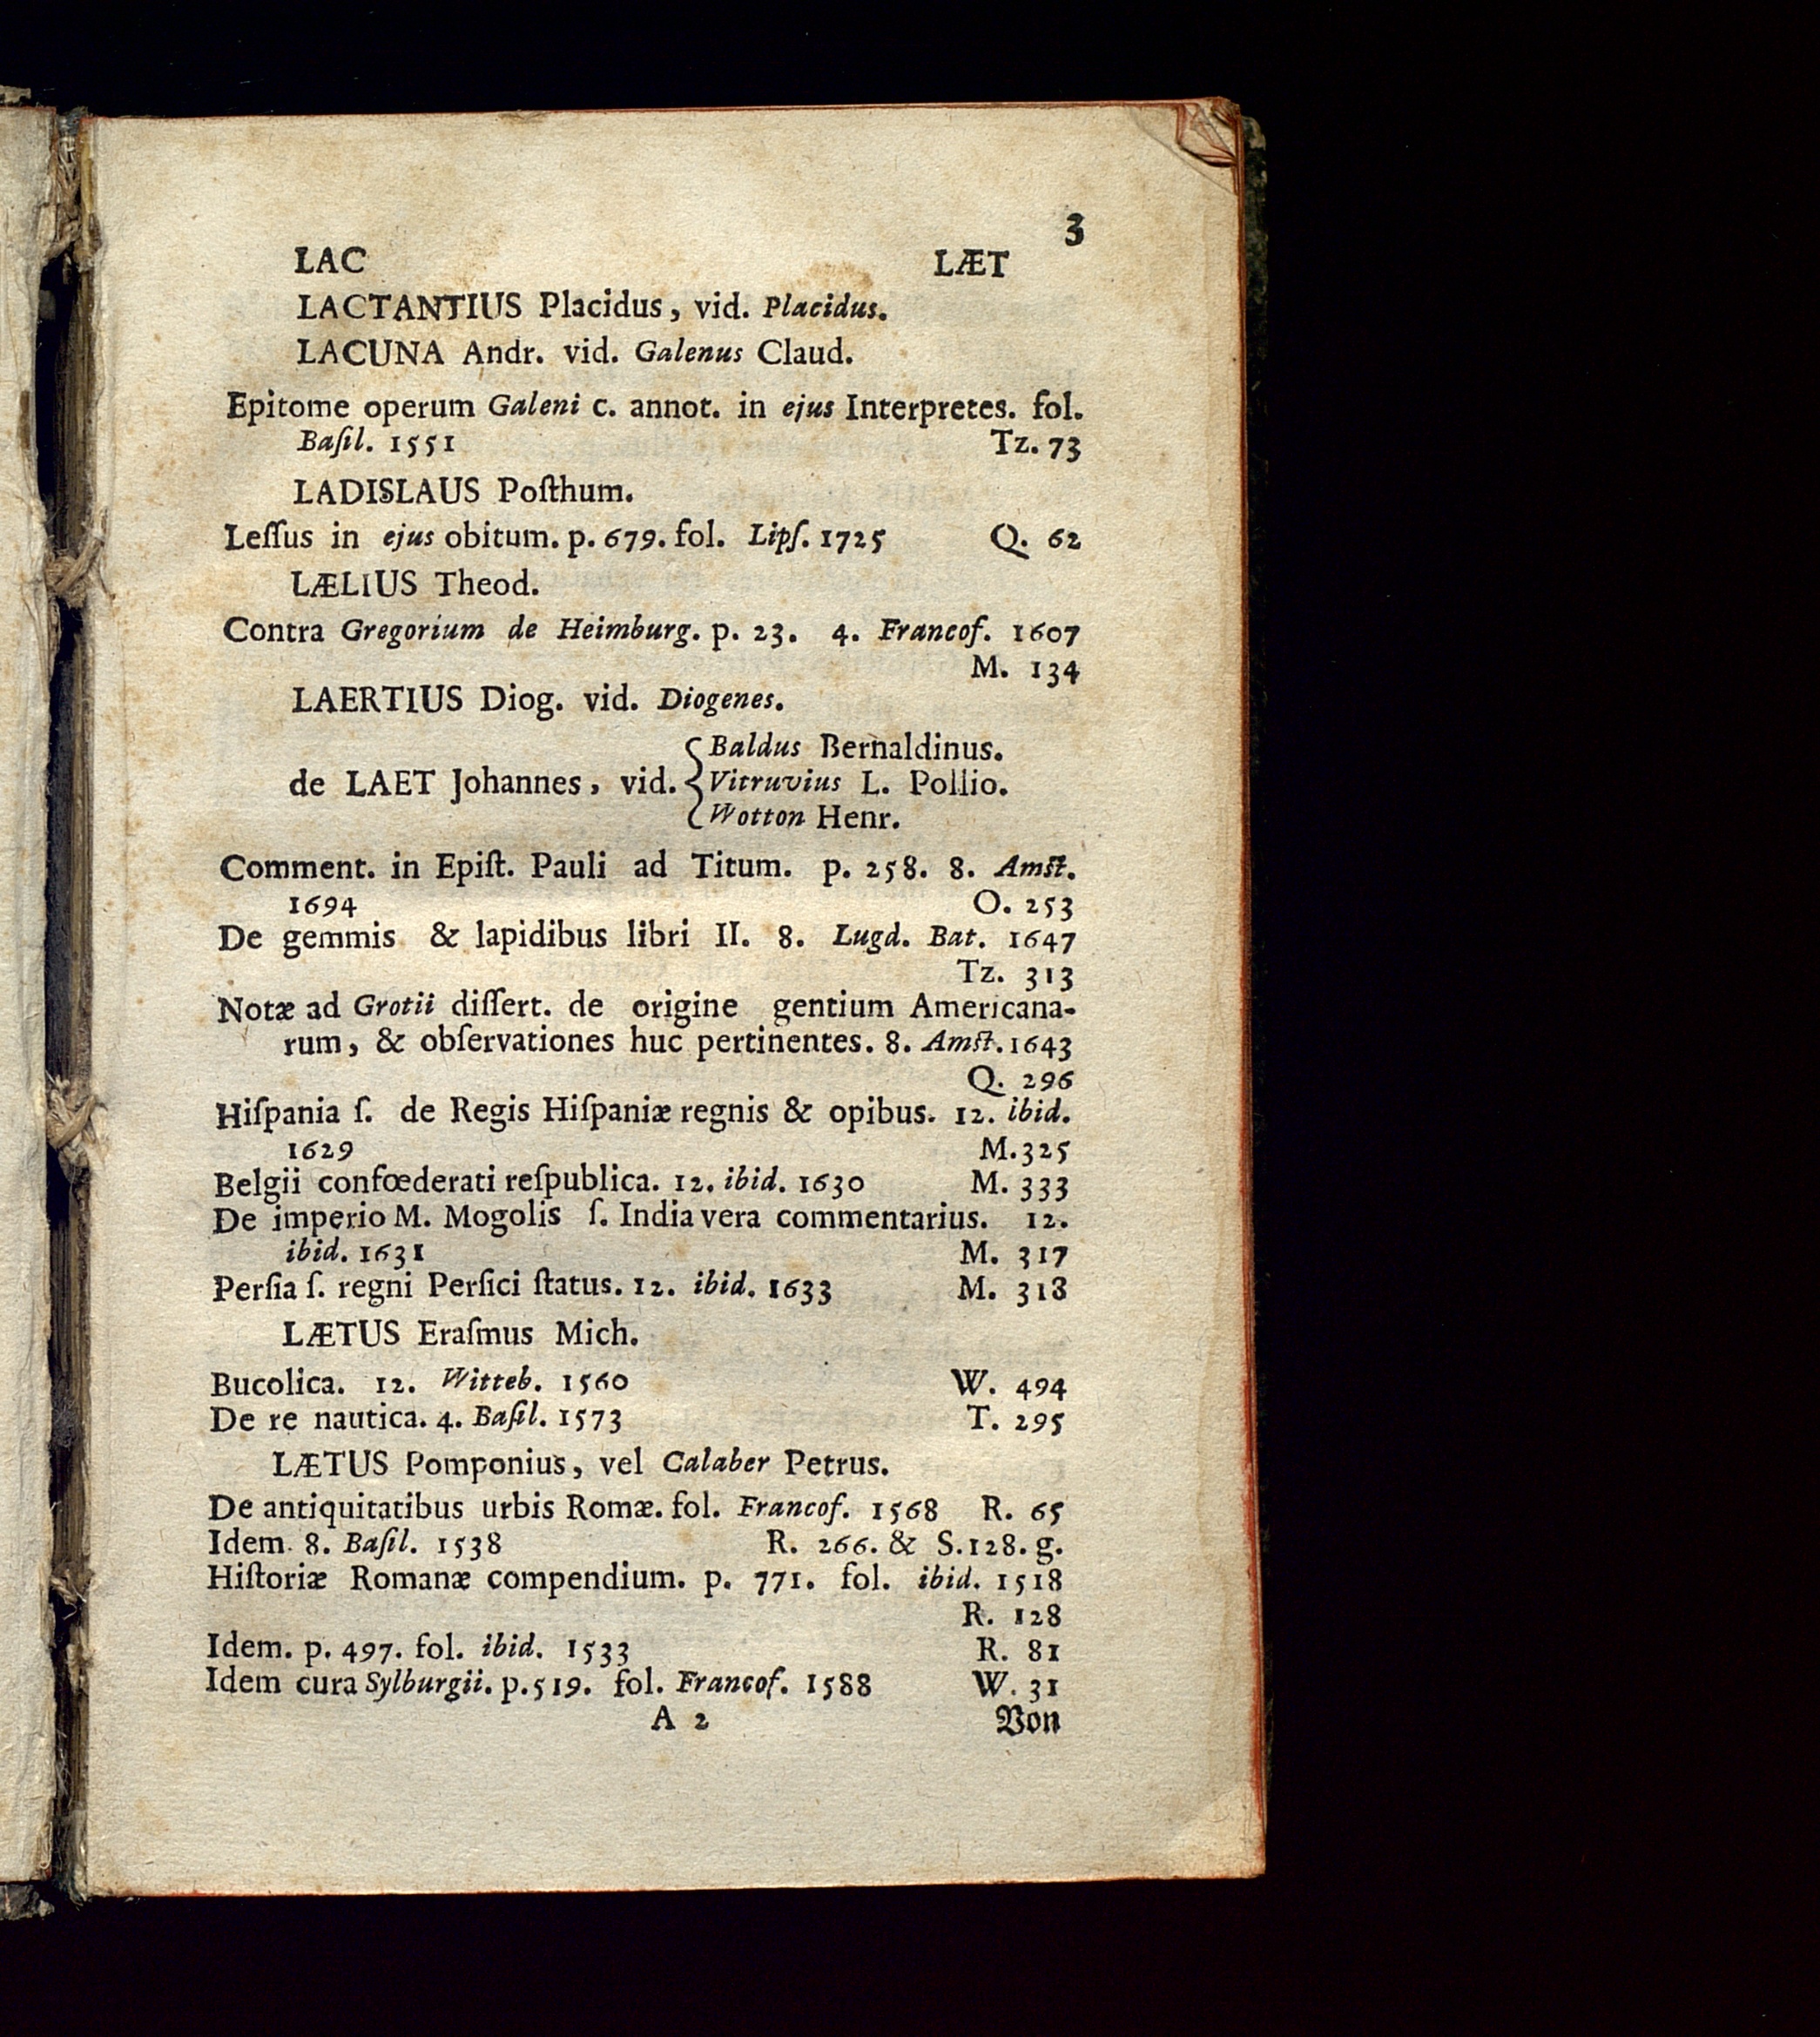 3
LAC LÆT
LACTANTIUS Placidus, vid. Placidus.
LACUNA Andr. vid. Galenus Claud.
Epitome operum Galeni c. annot. in ejus Interpretes. fol.
Baſil. 1551 Tz. 73
LADISLAUS Poſthum.
Leſſus in ejus obitum. p. 679. fol. Lipſ. 1725 Q. 62
LÆLIUS Theod.
Contra Gregorium de Heimburg. p. 23. 4. Francof. 1607
M. 134
LAERTIUS Diog. vid. Diogenes.
Baldus Bernaldinus.
de LAET Johannes, vid. { Vitruvius L. Pollio.
Wotton Henr.
Comment. in Epiſt. Pauli ad Titum. p. 258. 8. Amſt.
1694 O. 253
De gemmis & lapidibus libri II. 8. Lugd. Bat. 1647
Tz. 313
Notæ ad Grotii diſſert. de origine gentium Americana-
rum, & obſervationes huc pertinentes. 8. Amſt. 1643
Q. 296
Hiſpania ſ. de Regis Hiſpaniæ regnis & opibus. 12. ibid.
1629 M. 325
Belgii confœderati reſpublica. 12. ibid. 1630 M. 333
De imperio M. Mogolis ſ. India vera commentarius. 12.
ibid. 1631 M. 317
Perſia ſ. regni Perſici ſtatus. 12. ibid. 1633 M. 318
LÆTUS Eraſmus Mich.
Bucolica. 12. Witteb. 1560 W. 494
De re nautica. 4. Baſil. 1573 T. 295
LÆTUS Pomponius, vel Calaber Petrus.
De antiquitatibus urbis Romæ. fol. Francof. 1568 R. 65
Idem. 8. Baſil. 1538 R. 266. & S. 128. g.
Hiſtoriæ Romanæ compendium. p. 771. fol. ibid. 1518
R. 128
Idem. p. 497. fol. ibid. 1533 R. 81
Idem cura Sylburgii. p. 519. fol. Francof. 1588 W. 31
A 2 Von